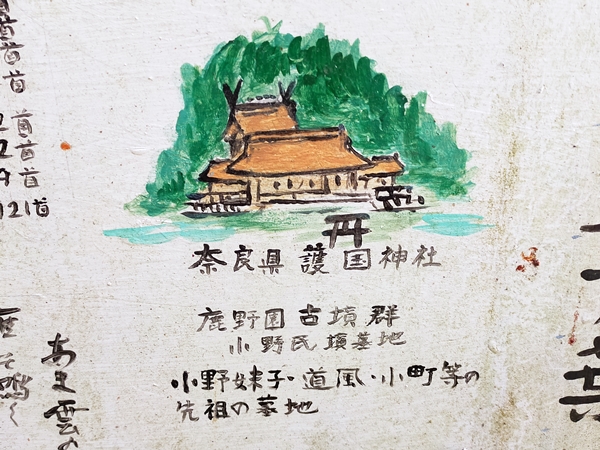 奈良県護国神社
鹿野園古墳群
小野氏墳墓地
小野妹子・道風・小町等の
先祖の墓地
首
首
首
首
2首
2首
9首
121首
高ま雲の
そ鳴く
葉